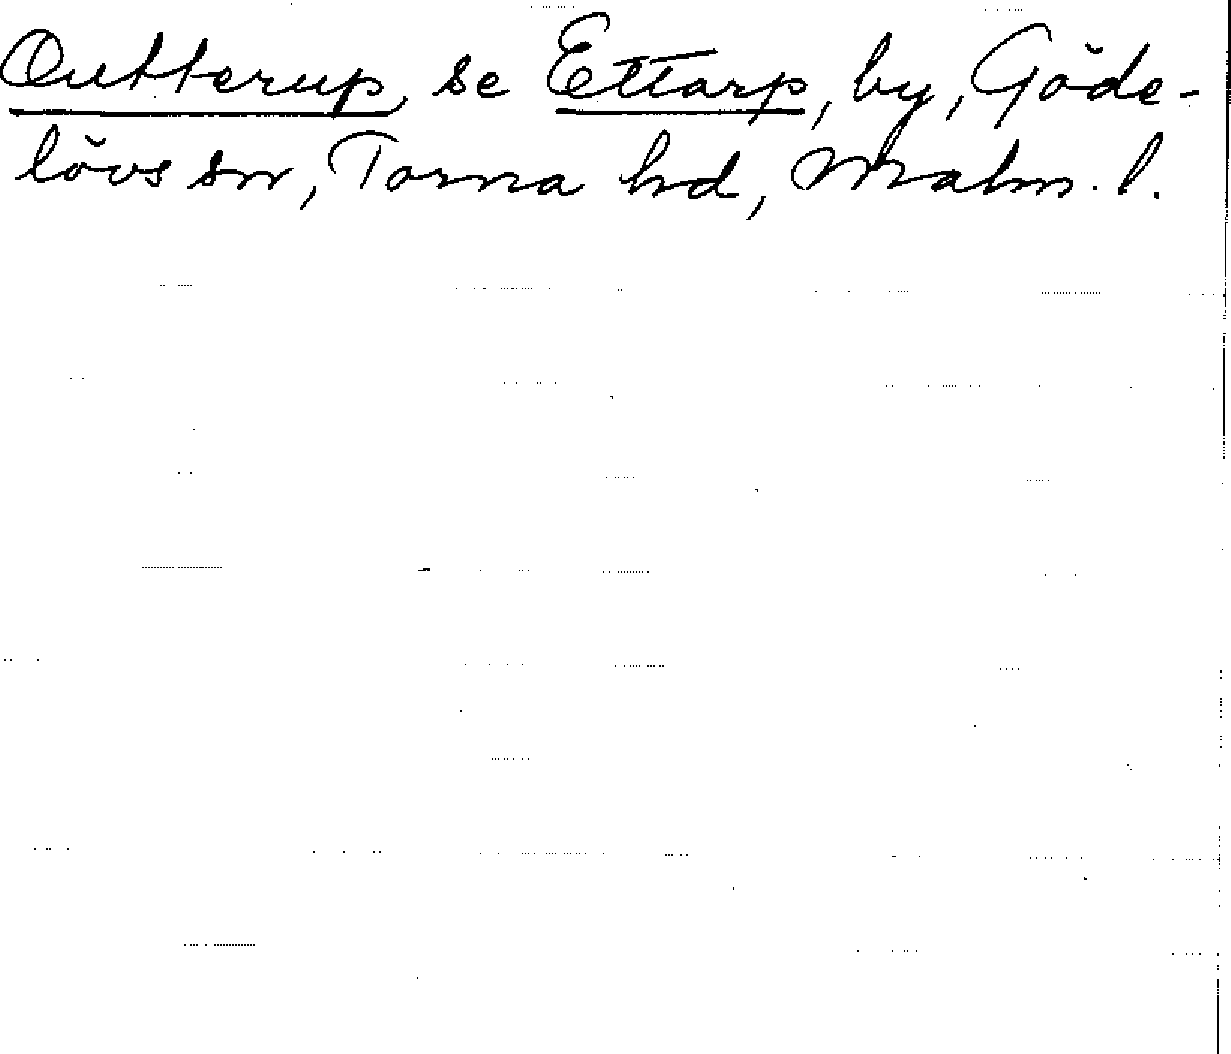 Outterup, se Ettarp, by, Göde-
lövs sn, Torna hd, Malm. l.